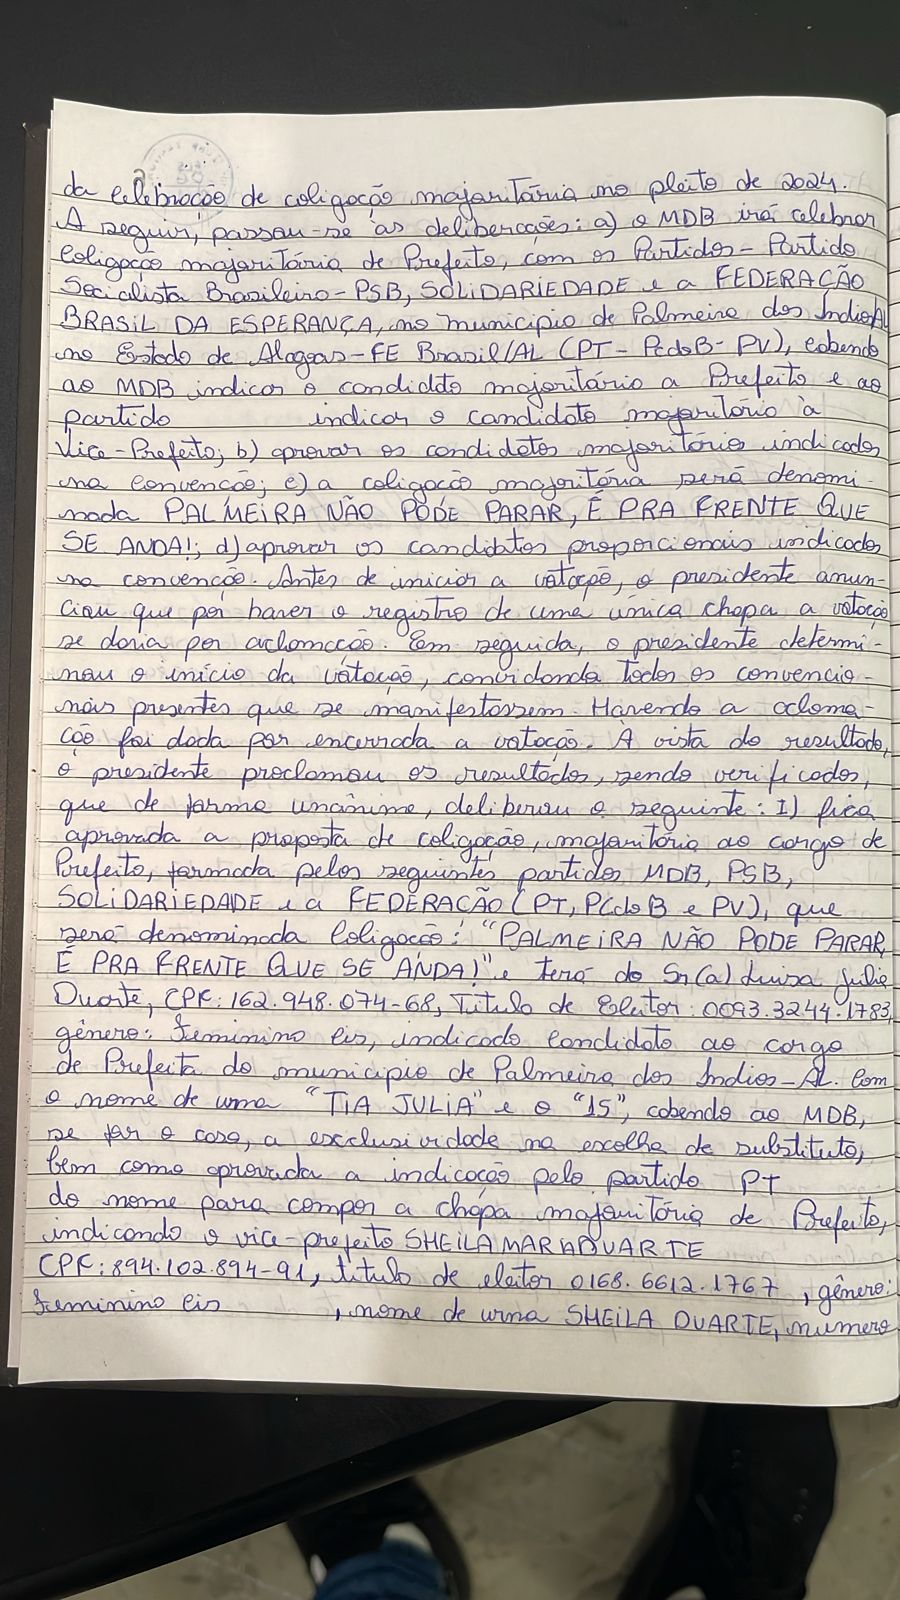 da celebração de coligação majoritária no pleito de 2024.
A seguir, passou-se às deliberações: a) o MDB irá celebrar
Coligação majoritária de Prefeito, com os Partidos - Partido
Socialista Brasileiro - PSB, SOLIDARIEDADE e a FEDERAÇÃO
BRASIL DA ESPERANÇA, no município de Palmeira dos Indios/AL
no Estado de Alagoas - FE Brasil/AL (PT - PcdoB - PV), cabendo
ao MDB indicar o candidato majoritário a Prefeito e ao
partido indicar o candidato majoritário à
Vice-Prefeito; b) aprovar os candidatos majoritários indicados
na Convenção; c) a coligação majoritária será denomi-
nada PALMEIRA NÃO PODE PARAR, É PRA FRENTE QUE
SE ANDA!; d) aprovar os candidatos proporcionais indicados
na convenção. Antes de iniciar a votação, o presidente anun-
ciou que por haver o registro de uma única chapa a votação
se daria por aclamação. Em seguida, o presidente determi-
nou o início da votação, convidando todos os convencio-
nais presentes que se manifestassem. Havendo a aclama-
ção foi dada por encerrada a votação. A vista do resultado,
o presidente proclamou os resultados, sendo verificados,
que de forma unânime, deliberou o seguinte: I) fica
aprovada a proposta de coligação, majoritária ao cargo de
Prefeito, formada pelos seguintes partidos MDB, PSB,
SOLIDARIEDADE e a FEDERAÇÃO (PT, PCdoB e PV), que
será denominada Coligação: "PALMEIRA NÃO PODE PARAR,
É PRA FRENTE QUE SE ANDA!" e terá do Sr(a) Luisa Julia
Duarte, CPF: 162.948.074-68, Título de Eleitor: 0093.3244.1783,
gênero: Feminino cis, indicado candidato ao cargo
de Prefeita do município de Palmeira dos Indios - AL. Com
o nome de urna "TIA JULIA" e o "15", cabendo ao MDB,
se for o caso, a exclusividade na escolha de substituto,
bem como aprovada a indicação pelo partido PT
do nome para compor a chapa majoritária de Prefeito,
indicando o vice-prefeito SHEILA MARIA DUARTE
CPF: 894.102.894-91, título de eleitor 0168.6612.1767, gênero:
Feminino cis , nome de urna SHEILA DUARTE, numero